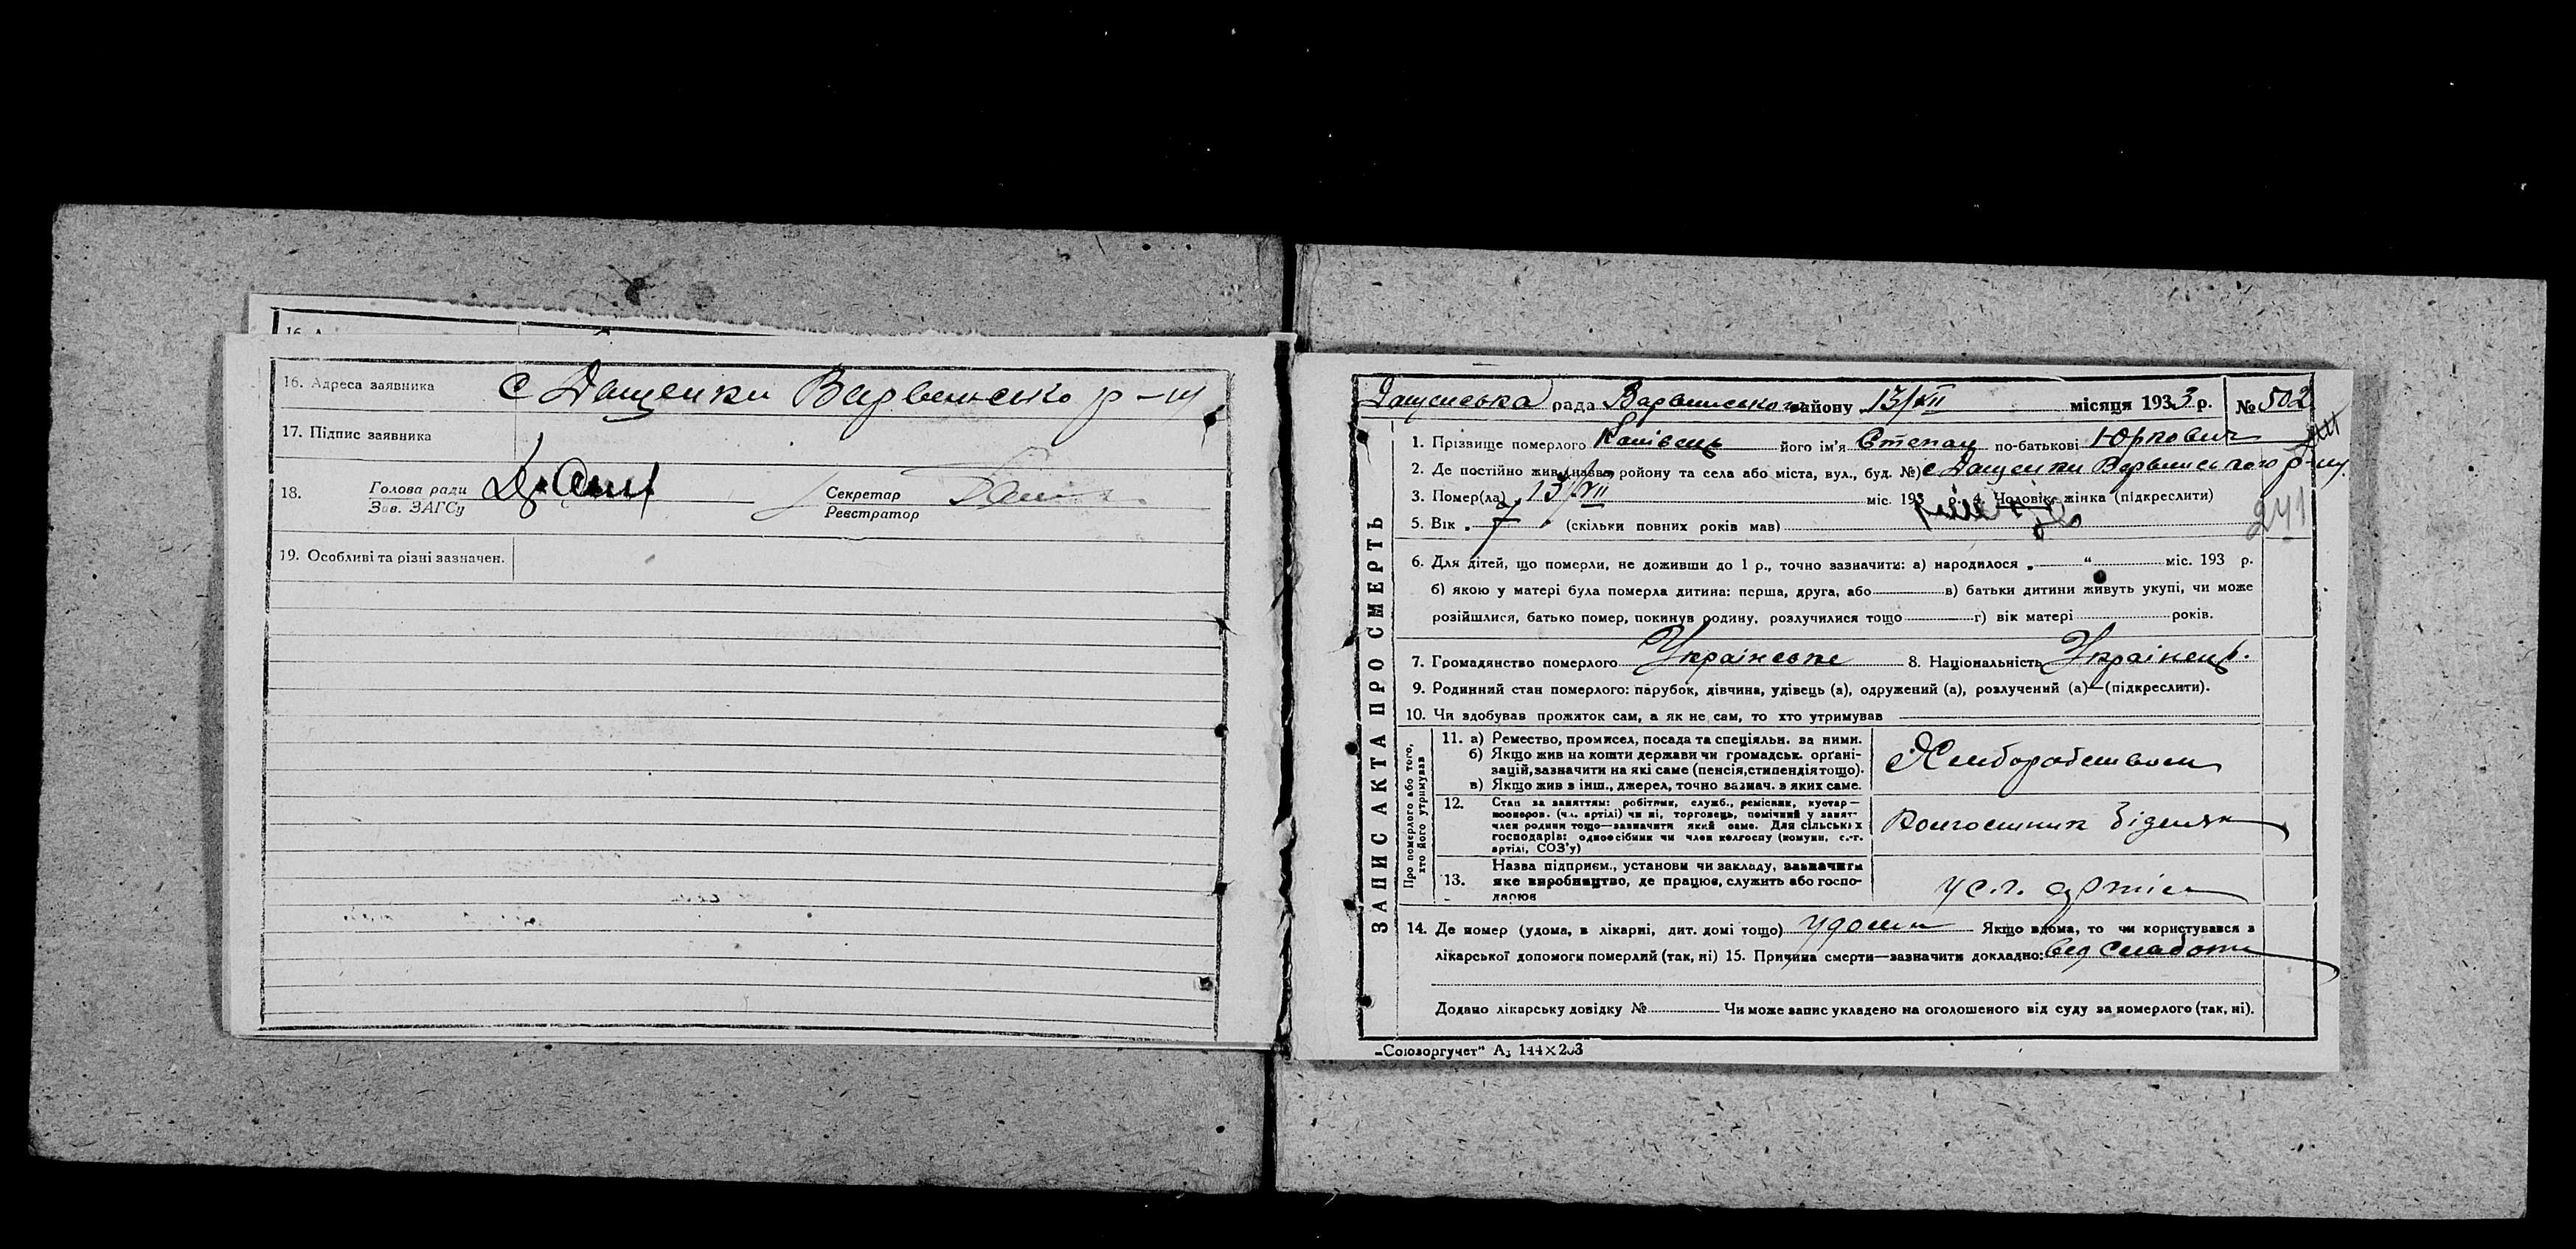 16. А
16. Адреса заявника с Дащенки Варвинсько р-ну
17. Підпис заявника
18. Голова ради Секретар
Зав. ЗАГСу Реєстратор
19. Особливі та різні зазначен.
Дащенська рада Варвинського району 13/XII місяця 1933 р. № 502
1. Прізвище померлого Канівець його ім'я Степан по-батькові Юркович
2. Де постійно жив (назва району та села або міста, вул., буд. №) с Дащенки Варвинського р-ну.
3. Помер(ла) „ 13/XII міс. 193 р. 4. Чоловік, жінка (підкреслити)
5. Вік „ 7 " (скільки повних років мав)
241
6. Для дітей, що померли, не доживши до 1 р., точно зазначити: а) народилося „ “ міс. 193 р.
б) якою у матері була померла дитина: перша, друга, або в) батьки дитини живуть укупі, чи може
розійшлися, батько помер, покинув родину, розлучилися тощо г) вік матері років.
7. Громадянство померлого Українське 8. Національність Українець.
9. Родинний стан померлого: парубок, дівчина, удівець (а), одружений (а), розлучений (а)—(підкреслити).
10. Чи здобував прожиток сам, а як не сам, то хто утримував
ЗАПИС АКТА ПРО СМЕРТЬ
Про померлого або того,
хто його утримував
11. а) Ремество, промисел, посада та спеціяльн. за ними.
б) Якщо жив на кошти держави чи громадськ. орґані-
зацій, зазначити на які саме (пенсія, стипендія тощо).
в) Якщо жив з інш., джерел, точно зазнач. з яких саме.
Хлиборобством
12. Стан за заняттям: робітник, служб., ремісник, кустар—
кооперов. (чл. артілі) чи ні, торговець, помічний у занят-
член родини тощо—зазначити який саме. Для сільських
господарів: одноосібник чи член колгоспу (комуни, с.-г.
артілі, СОЗ'у)
Колгоспник бідняк
13. Назва підприєм., установи чи закладу, зазначити
яке виробництво, де працює, служить або госпо-
дарює
у с.г. артіл
14. Де помер (удома, в лікарні, дит. домі тощо) удоми Якщо вдома, то чи користувався з
лікарської допомоги померлий (так, ні) 15. Причина смерти—зазначити докладно: від слаботи
Додано лікарську довідку № Чи може запис укладено на оголошеного від суду за померлого (так, ні).
„Союзоргучет“ А₅ 144×203